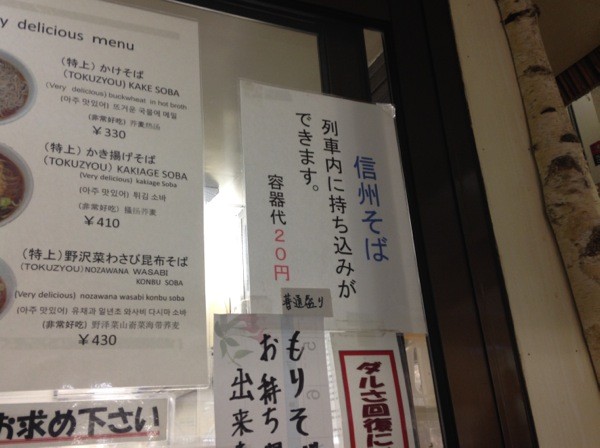 y delicious menu
(特上) かけそば
(TOKUZYOU) KAKE SOBA
(Very delicious) buckwheat in hot broth
(아주 맛있어) 뜨거운 국물에 메밀
(非常好吃) 荞麦热汤
￥330
(特上) かき揚げそば
(TOKUZYOU) KAKIAGE SOBA
(Very delicious) kakiage Soba
(아주 맛있어) 튀김 소바
(非常好吃)
￥410
(特上) 野沢菜わさび昆布そば
(TOKUZYOU) NOZAWANA WASABI
KONBU SOBA
(Very delicious) nozawana wasabi konbu soba
(아주 맛있어) 유채과 일년초 와사비 다시마 소바
(非常好吃) 野洋菜山崳菜海带荞麦
￥430
お求め下さい
信州そば
列車内に持ち込みが
できます。
容器代20円
普通盛り
もりそ
お持ち
出来
ダルさ回復に